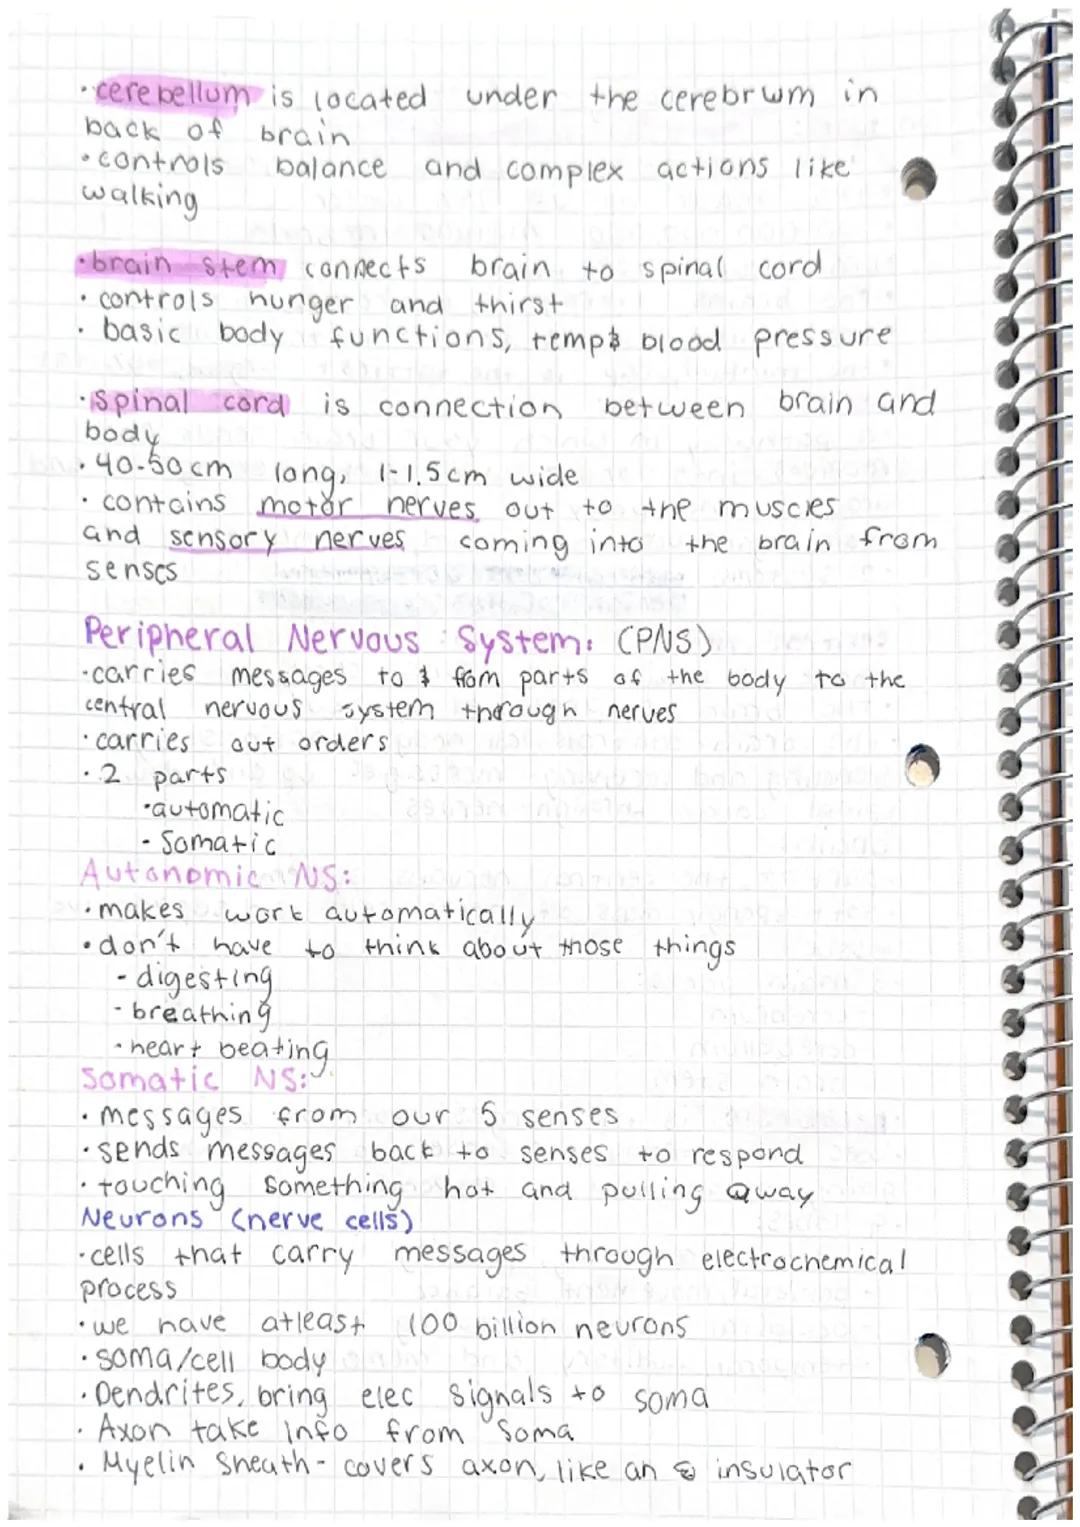 ·cerebellum is located under the cerebrum in
back of brain
·controls balance and complex actions like
walking
·brain stem connects brain to spinal cord
· controls hunger and thirst
· basic body functions, temp & blood pressure
·spinal cord is connection between brain and
body
· 40-50cm long, 1-1.5cm wide
· contains motor nerves out to the muscles
and sensory nerves coming into the brain from
senses
Peripheral Nervous System: (PNS)
·carries messages to & from parts of the body to the
central nervous system through nerves
·carries out orders
· 2 parts
·automatic
- Somatic
Autonomic NS:
·makes work automatically
·don't have to think about those things
- digesting
- breathing
· heart beating
Somatic NS:
· messages from our 5 senses
·sends messages back to senses to respond
· touching something hot and pulling away
Neurons (nerve cells)
·cells that carry messages through electrochemical
process
·we have atleast 100 billion neurons
·soma/cell body
· Dendrites, bring elec signals to soma
· Axon take info from Soma
· Myelin Sheath- covers axon, like an insulator